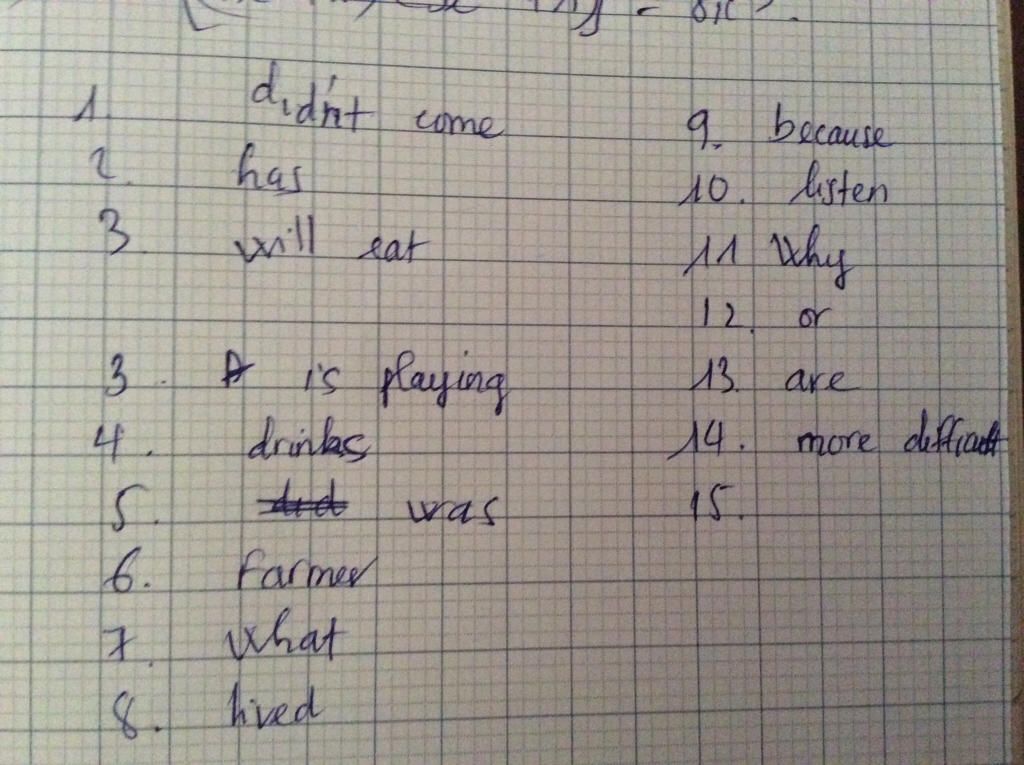 1. didn't come
2. has
3 will eat
3. is playing
4. drinks
5. was
6. Farmer
7. What
8. lived
9. because
10. listen
11 Why
12. or
13. are
14. more difficult
15.